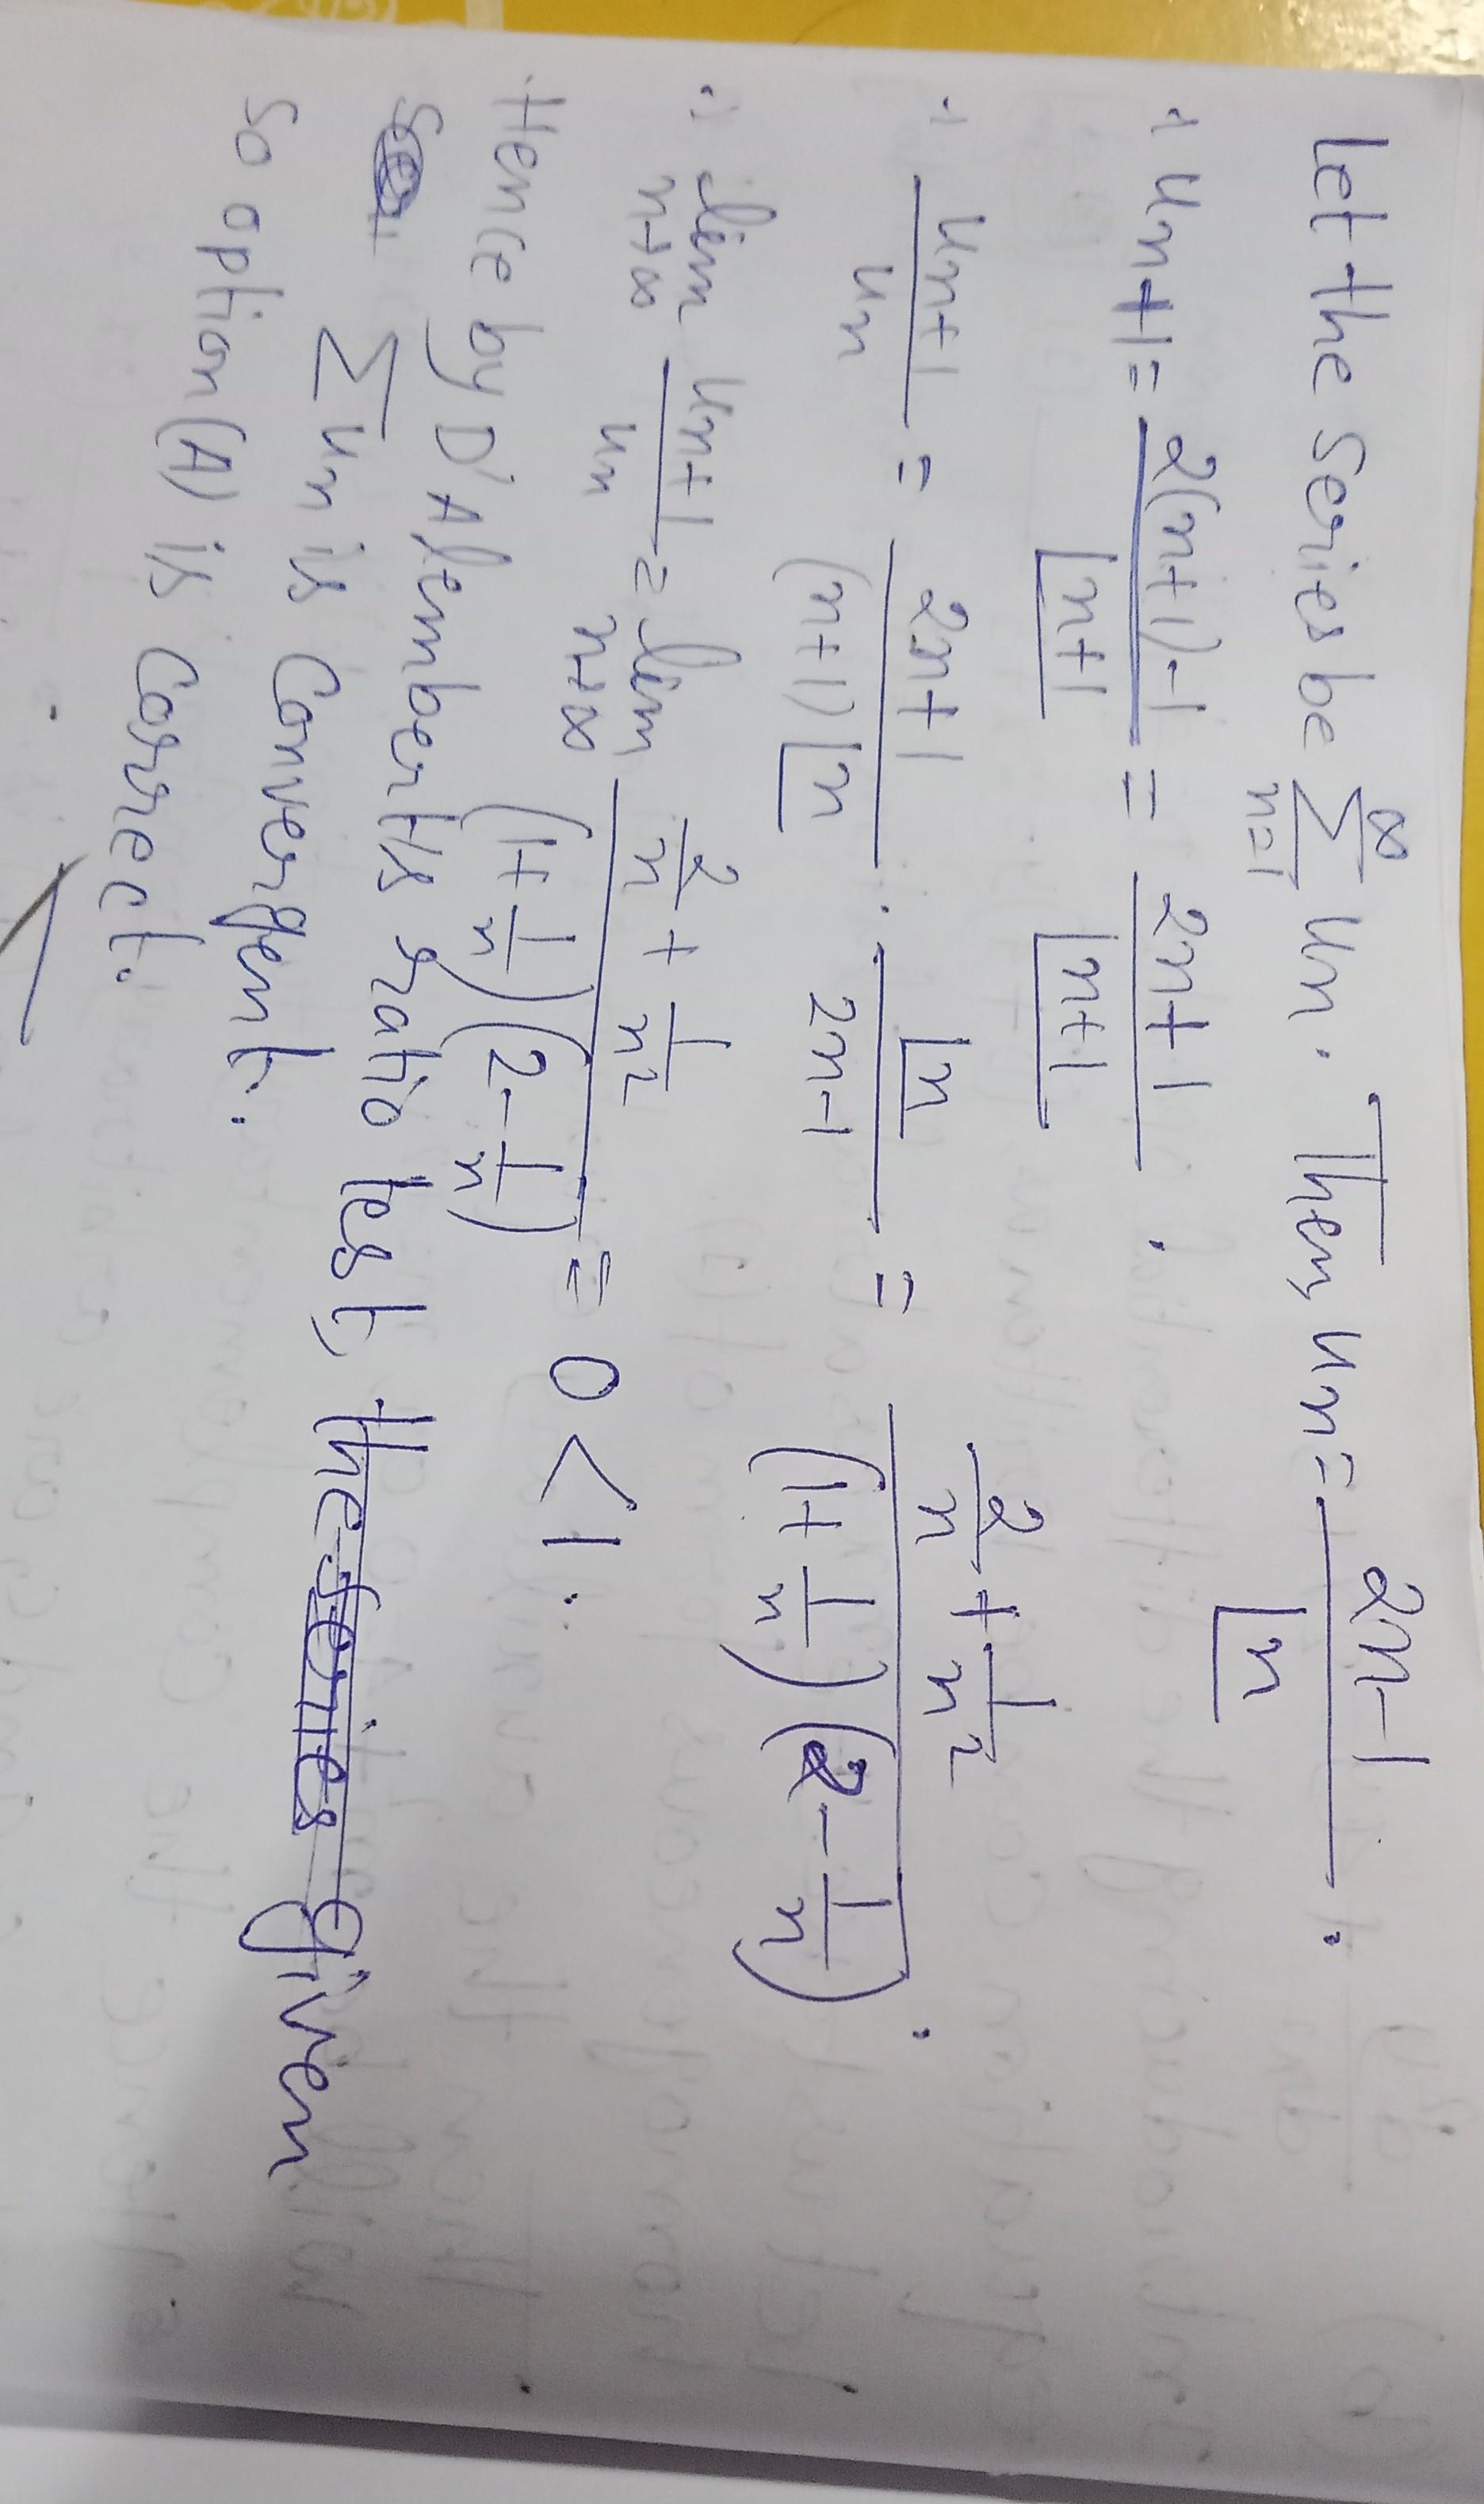 Let the series be ∞ Σ n=1 un. Then, un = 2n-1 / |n .
∴ un+1 = 2(n+1)-1 / |n+1 = 2n+1 / |n+1 .
∴ un+1 / un = 2n+1 / (n+1) |n . |n / 2n-1 = 2/n + 1/n² / (1+ 1/n) (2 - 1/n) .
∴ lim n→∞ un+1 / un = lim n→∞ 2/n + 1/n² / (1+ 1/n) (2 - 1/n) = 0 < 1.
Hence by D'Alembert's ratio test, the series given
Σ un is Convergent.
So option (A) is Correct.